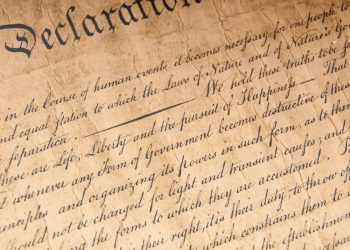 Declaration
in the Course of human events it becomes necessary for one people to
and equal station to which the Laws of Nature and of Nature's G
separation. We hold these truths to be
these are Life, Liberty and the pursuit of Happiness— That
t whenever any Form of Government becomes destructive of
inciples and organizing its powers in such form, as to them
ould not be changed for light and transient causes; and
ing the forms to which they are accustomed.
is their right, it is their duty, to throw off
which constrains them to
the establishment